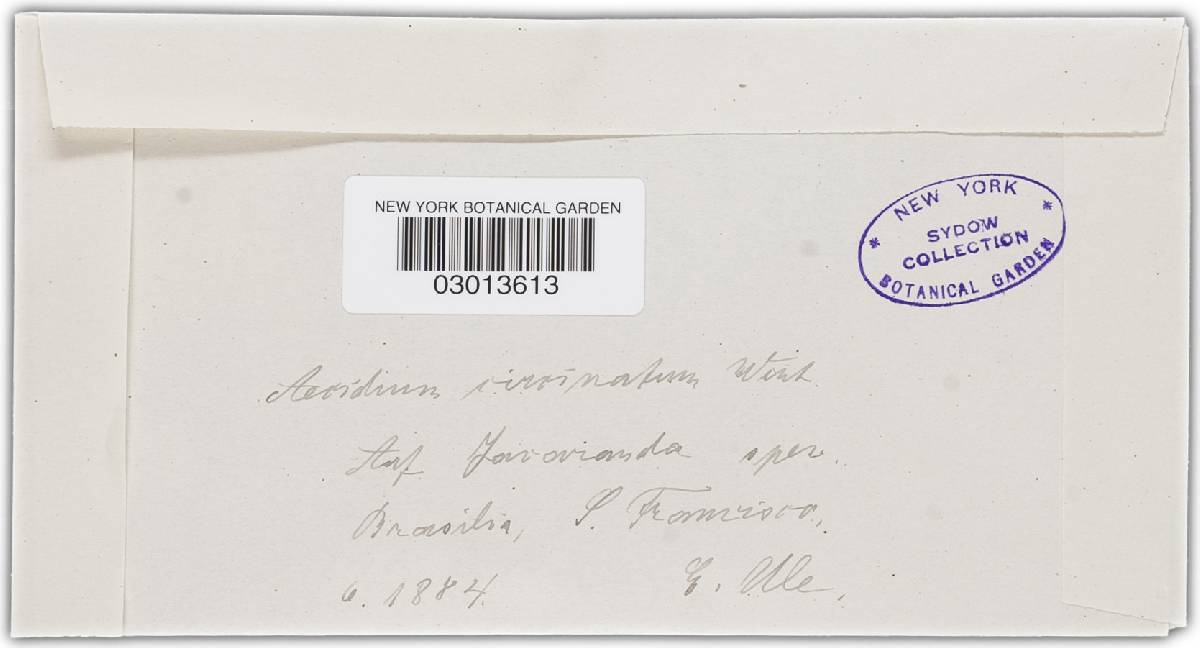 NEW YORK BOTANICAL GARDEN
03013613
* NEW YORK *
SYDOW
COLLECTION
BOTANICAL GARDEN
Aecidium circinatum Wint.
Auf Jacaranda spec.
Brasilia, S. Francisco,
6. 1884. E. Ule.